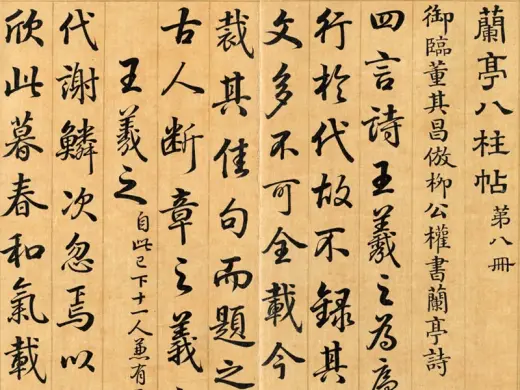 蘭亭八柱帖 第八冊
御臨董其昌倣柳公權書蘭亭詩
四言詩王羲之為
行於代故不録其
文多不可全載今
裁其佳句而題之
古人断章之義
王羲之 自此已下十一人兼有
代謝鱗次忽焉以
欣此暮春和氣載